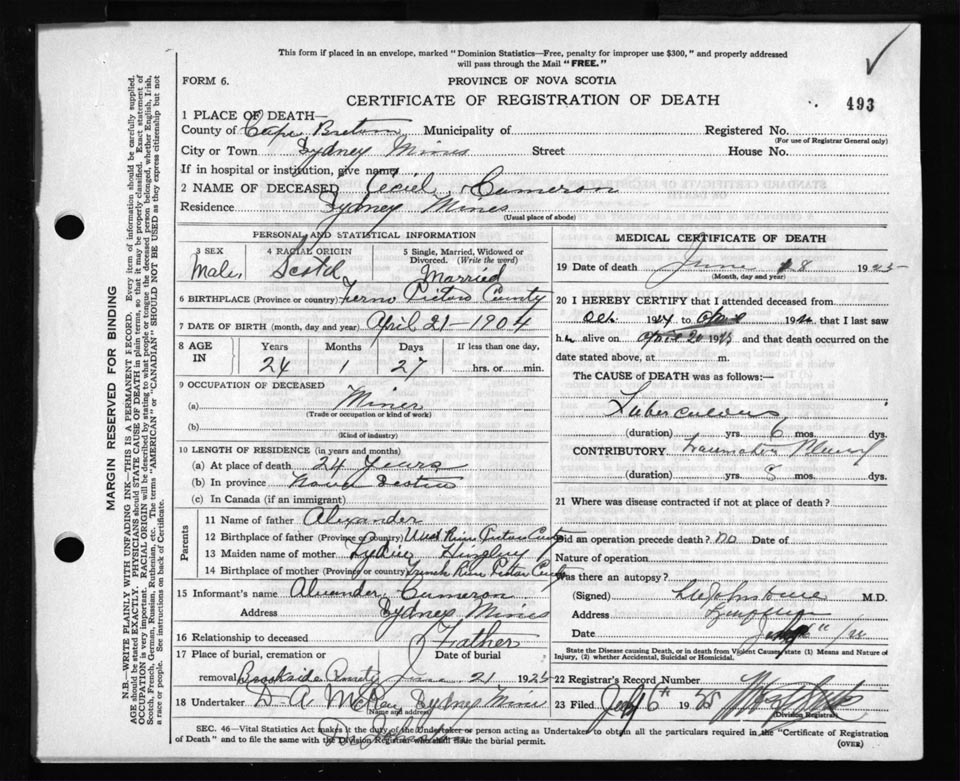 This form if placed in an envelope, marked "Dominion Statistics—Free, penalty for improper use $300," and properly addressed
will pass through the Mail "FREE."
FORM 6.
PROVINCE OF NOVA SCOTIA
CERTIFICATE OF REGISTRATION OF DEATH
493
1 PLACE OF DEATH—
County of Cape Breton Municipality of Registered No.
(For use of Registrar General only)
City or Town Sydney Mines Street House No.
If in hospital or institution, give name
2 NAME OF DECEASED Cameron
Residence Sydney Mines
(Usual place of abode)
PERSONAL AND STATISTICAL INFORMATION
3 SEX
Male
4 RACIAL ORIGIN
Scotch
5 Single, Married, Widowed or
Divorced. (Write the word)
Married
6 BIRTHPLACE (Province or country) Pictou County
7 DATE OF BIRTH (month, day and year) April 21-1904
8 AGE
IN
Years
24
Months
1
Days
27
If less than one day,
hrs. or min.
9 OCCUPATION OF DECEASED
(a) Miner
(Trade or occupation or kind of work)
(b)
(Kind of industry)
10 LENGTH OF RESIDENCE (in years and months)
(a) At place of death 24 Years
(b) In province Nova Scotia
(c) In Canada (if an immigrant)
Parents
11 Name of father Alexander
12 Birthplace of father (Province or Country) West River Pictou
13 Maiden name of mother
14 Birthplace of mother (Province or country) French River Pictou
15 Informant's name Alexander Cameron
Address Sydney Mines
16 Relationship to deceased Father
17 Place of burial, cremation or
removal Brookside
Date of burial
June 21 1925
18 Undertaker D. A. McRae Sydney Mines
Name and address
MEDICAL CERTIFICATE OF DEATH
19 Date of death June 18 1925
(Month, day and year)
20 I HEREBY CERTIFY that I attended deceased from
Oct. 1924 to April 192 , that I last saw
h alive on April 20 1925 and that death occurred on the
date stated above, at m.
The CAUSE of DEATH was as follows:
Tuberculous
(duration) yrs. 6 mos. dys.
CONTRIBUTORY
(duration) yrs. 8 mos. dys.
21 Where was disease contracted if not at place of death?
Did an operation precede death? no Date of
Nature of operation
Was there an autopsy?
(Signed) M.D.
Address
Date
State the Disease causing Death, or in death from Violent Causes, state (1) Means and Nature of
Injury, (2) whether Accidental, Suicidal or Homicidal.
22 Registrar's Record Number
23 Filed July 6th 1925
(Division Registrar)
SEC. 46—Vital Statistics Act makes it the duty of the Undertaker or person acting as Undertaker to obtain all the particulars required in the "Certificate of Registration
of Death" and to file the same with the Division Registrar who shall issue the burial permit.
(OVER)
MARGIN RESERVED FOR BINDING
N.B.—WRITE PLAINLY WITH UNFADING INK—THIS IS A PERMANENT RECORD. Every item of information should be carefully supplied.
AGE should be stated EXACTLY. PHYSICIANS should STATE CAUSE OF DEATH in plain terms, so that it may be properly classified. Exact statement of
OCCUPATION is very important. RACIAL ORIGIN will be described by stating to what people or tongue the deceased person belonged, whether English, Irish,
Scotch, French, German, Russian, Ruthenian, etc. The terms "AMERICAN" or "CANADIAN" SHOULD NOT BE USED as they express citizenship but not
a race or people. See instructions on back of Certificate.